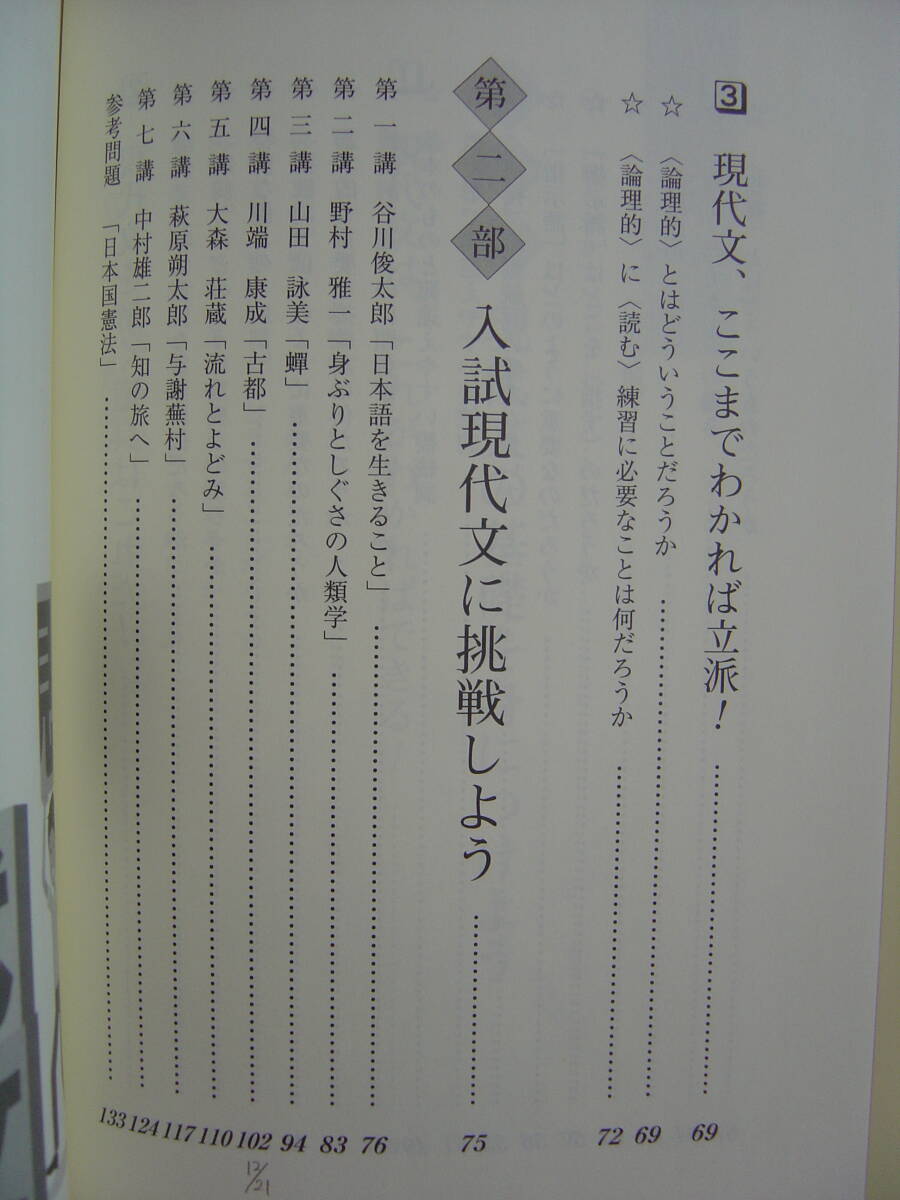 3 現代文、ここまでわかれば立派! 69
☆ 〈論理的〉とはどういうことだろうか 69
☆ 〈論理的〉に〈読む〉練習に必要なことは何だろうか 72
第二部 入試現代文に挑戦しよう 75
第一講 谷川俊太郎「日本語を生きること」 76
第二講 野村雅一「身ぶりとしぐさの人類学」 83
第三講 山田詠美「蟬」 94
第四講 川端康成「古都」 102
12/21
第五講 大森荘蔵「流れとよどみ」 110
第六講 萩原朔太郎「与謝蕪村」 117
第七講 中村雄二郎「知の旅へ」 124
参考問題「日本国憲法」 133